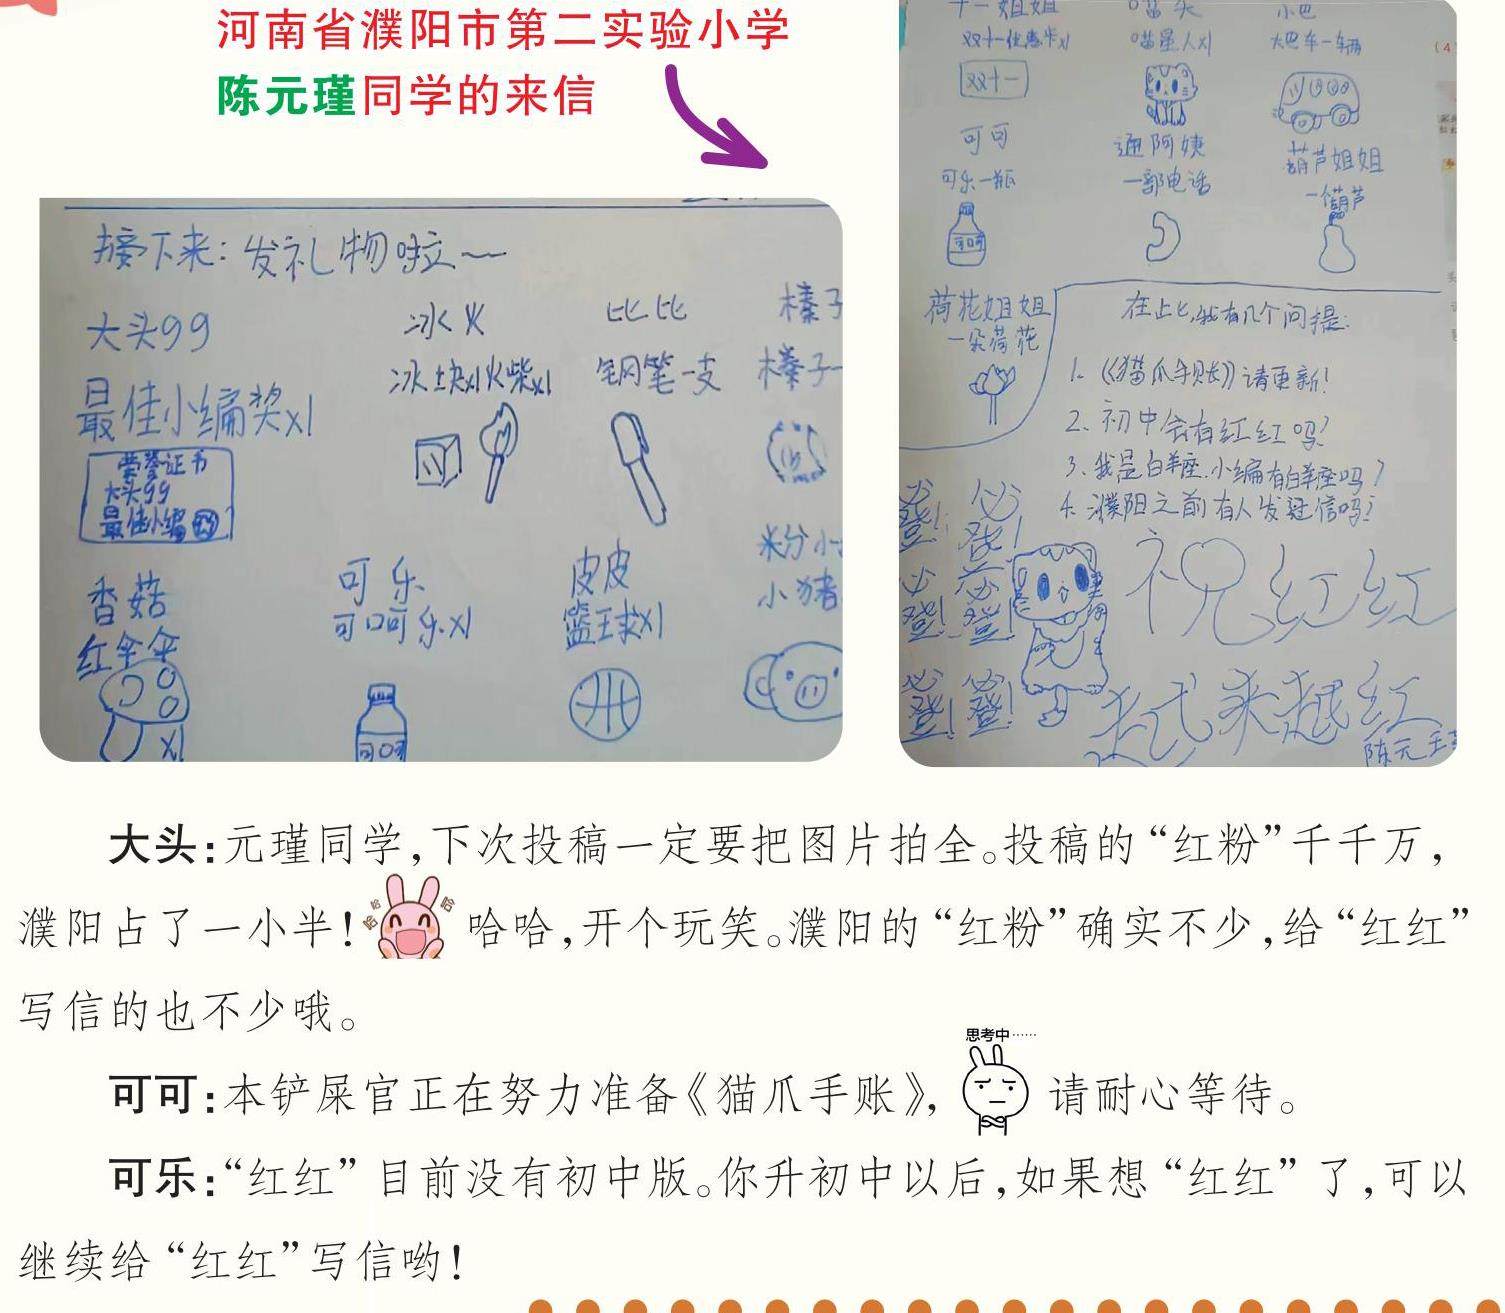 河南省濮阳市第二实验小学
陈元瑾同学的来信
接下来：发礼物啦~~
大头99
最佳小编奖x1
荣誉证书
大头99
最佳小编
冰火
冰块x1火柴x1
比比
钢笔一支
榛子
榛子一
香菇
红伞伞
x1
可乐
可口可乐x1
可口可
皮皮
篮球x1
米分小
小猪
十一姐姐
双十一优惠券x1
双十一
喵头
喵星人x1
小巴
大巴车一辆
可可
可乐一瓶
可口可
通阿姨
一部电话
葫芦姐姐
一个葫芦
荷花姐姐
一朵荷花
在此，我有几个问提：
1.《猫爪手账》请更新！
2、初中会有红红吗？
3、我是白羊座，小编有白羊座吗？
4、濮阳之前有人发过信吗？
必登！必登！
必登！必登！
必登！必登！
祝红红
越来越红
陈元瑾
大头：元瑾同学，下次投稿一定要把图片拍全。投稿的“红粉”千千万，
濮阳占了一小半！哈哈哈 哈哈，开个玩笑。濮阳的“红粉”确实不少，给“红红”
写信的也不少哦。
思考中……
可可：本铲屎官正在努力准备《猫爪手账》，请耐心等待。
可乐：“红红”目前没有初中版。你升初中以后，如果想“红红”了，可以
继续给“红红”写信哟！